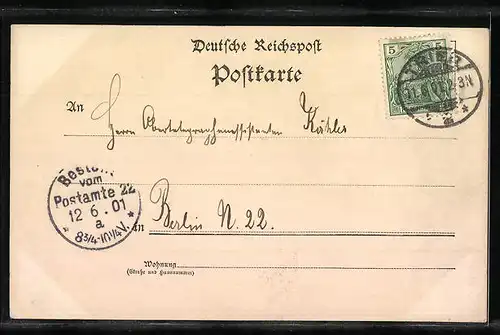 Deutsche Reichspost
Postkarte
5 5
An
Herrn Obertelegraphenassistenten Köhler
Bestellt
vom
Postamte 22
12 6. 01
a
* 8 3/4-10 1/4 V. *
in Berlin N. 22.
Wohnung
(Straße und Hausnummer)